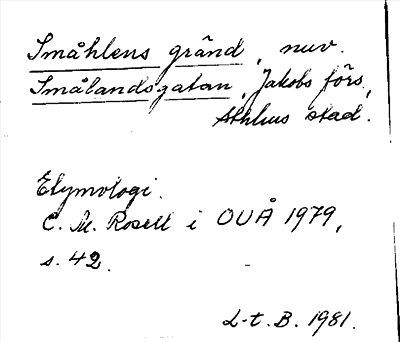 Småhlens gränd, nuv.
Smålandsgatan, Jakobs förs.,
Sthlms stad.
Etymologi.
C. M. Rosell i OUÅ 1979,
s. 42.
L-t. B. 1981.